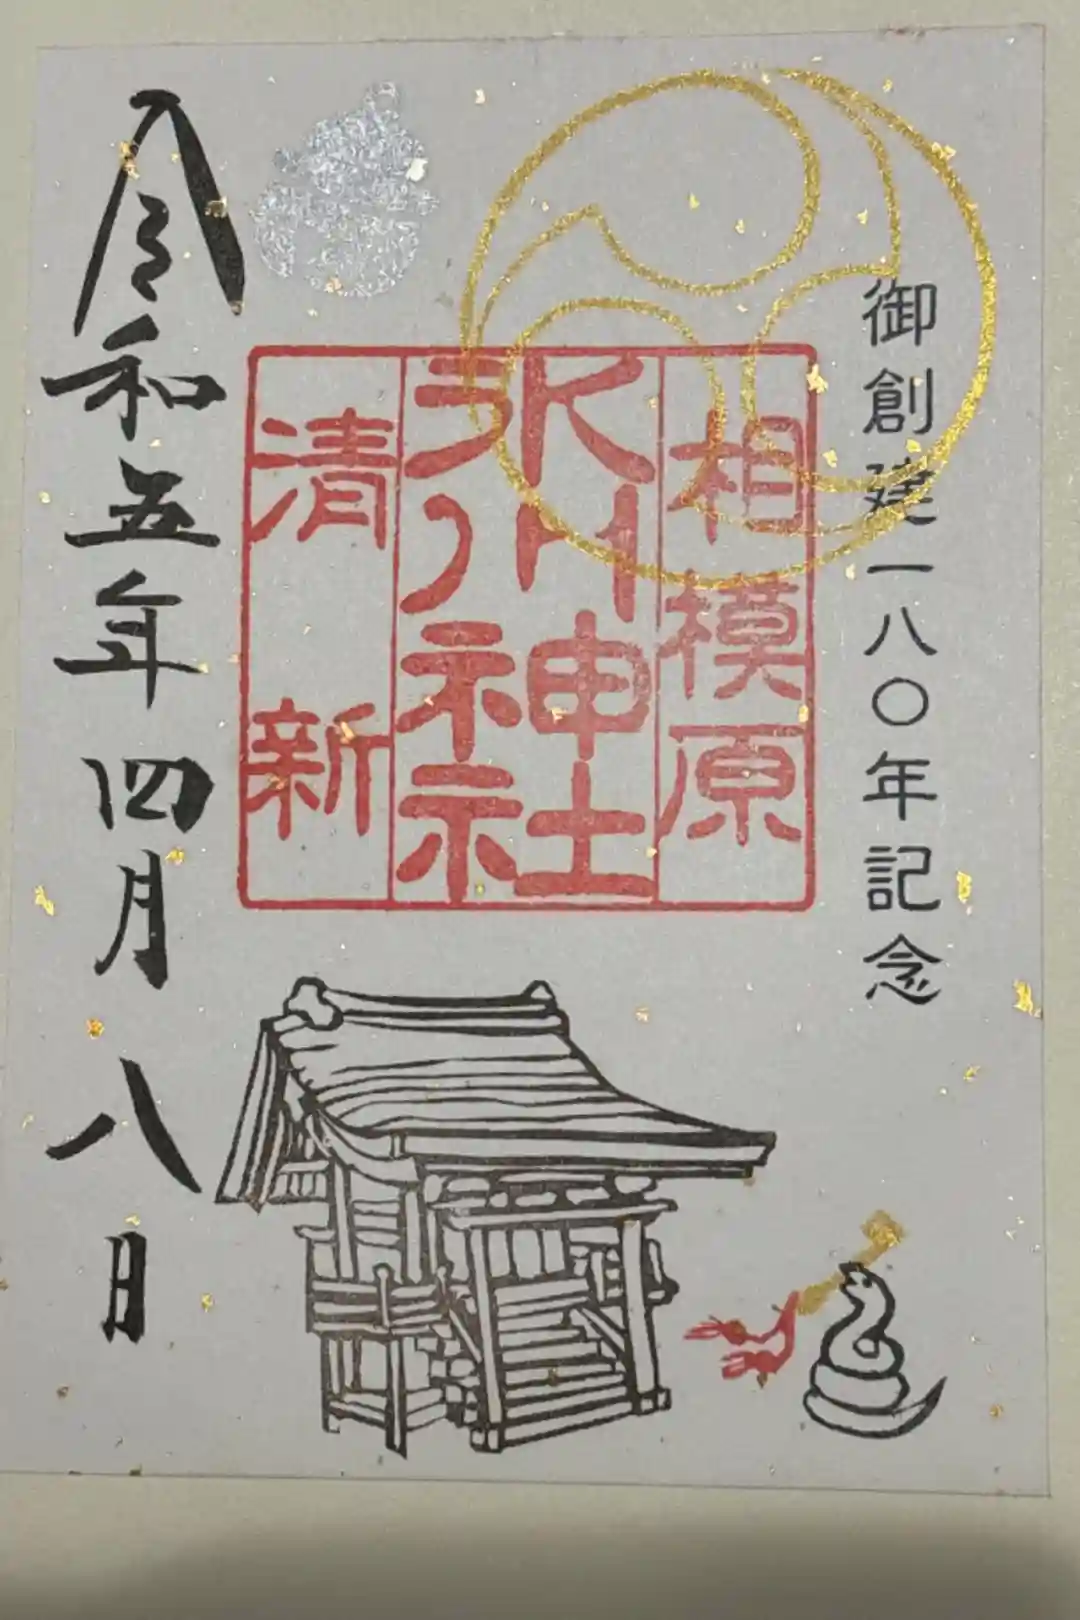 御創建一八〇年記念
相模原
氷川神社
清新
令和五年四月八日